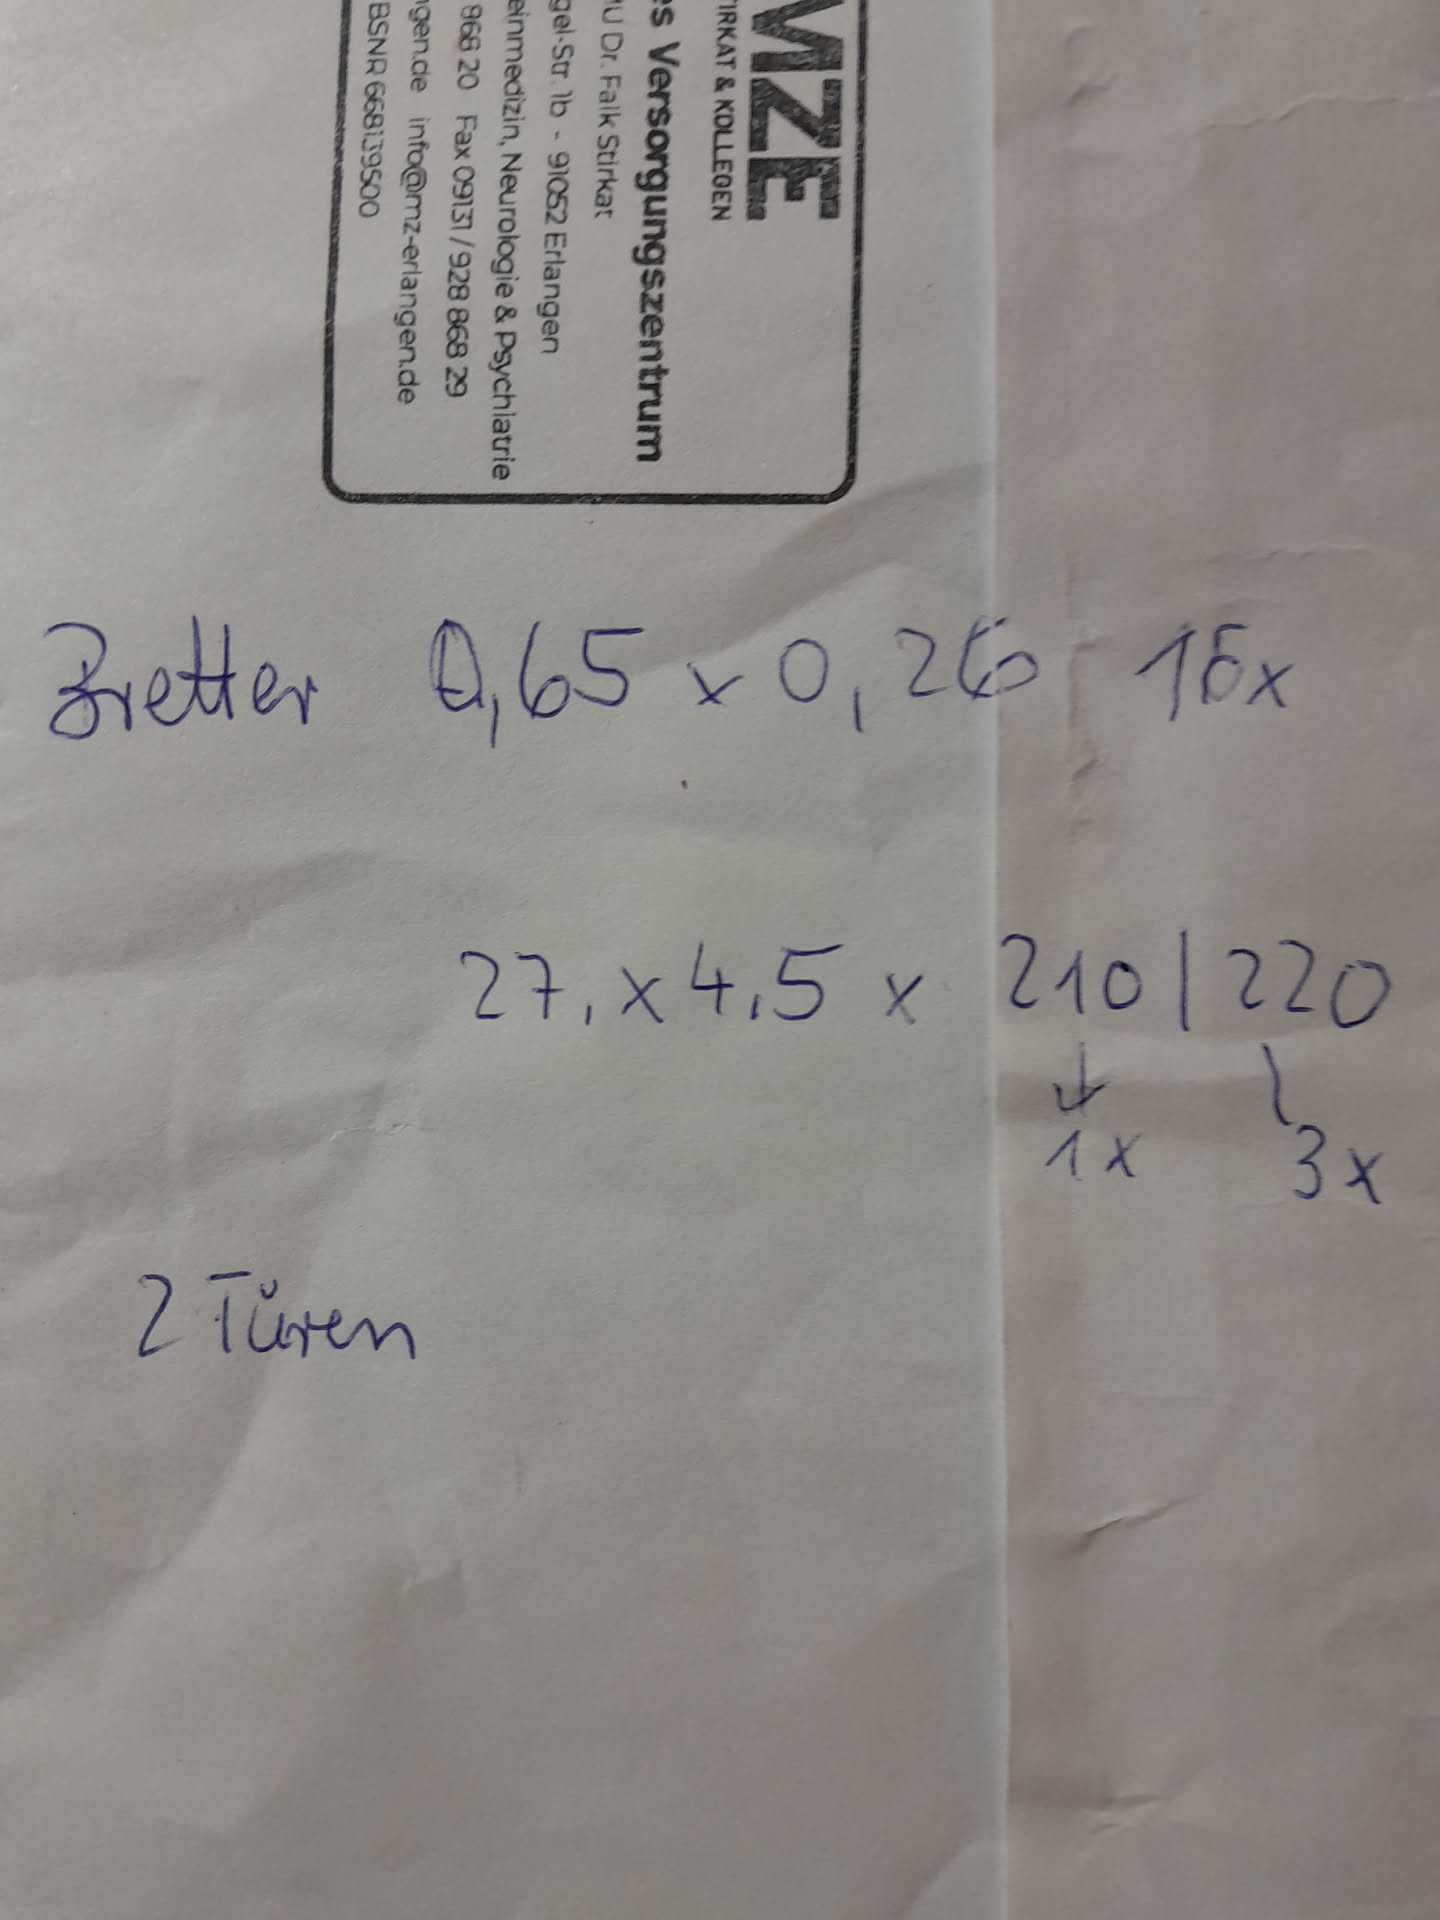 MZE
TIRKAT & KOLLEGEN
es Versorgungszentrum
MU Dr. Falk Stirkat
gel-Str. 1b - 91052 Erlangen
einmedizin, Neurologie & Psychiatrie
868 20 Fax 09131 / 928 868 29
ngen.de info@mz-erlangen.de
BSNR 668139500
Bretter 0,65 x 0,26 16x
27, x 4,5 x 210 | 220
1x 3x
2 Türen